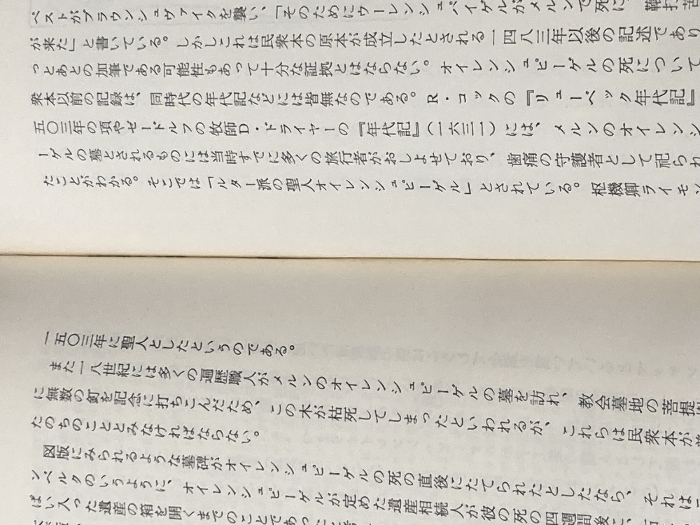 ペストがブラウンシュヴァイクを襲い、「そのためにウーレンシュペイゲルがメルンで死に、鞭打苦
が来た」と書いている。しかしこれは民衆本の原本が成立したとされる一四八三年以後の記述であり
っとあとの加筆である可能性もあって十分な証拠とはならない。オイレンシュピーゲルの死について
衆本以前の記録は、同時代の年代記などには皆無なのである。R・コックの『リューベック年代記』
五〇三年の項やゼードルフの牧師D・ドライヤーの『年代記』(一六三一)には、メルンのオイレンシ
ーゲルの墓とされるものには当時すでに多くの旅行者がおしよせており、歯痛の守護者として祀られ
たことがわかる。そこでは「ルター派の聖人オイレンシュピーゲル」とされている。枢機卿ライモン
一五〇三年に聖人としたというのである。
また一八世紀には多くの遍歴職人がメルンのオイレンシュピーゲルの墓を訪れ、教会墓地の菩提樹
に無数の釘を記念に打ちこんだため、この木が枯死してしまったといわれるが、これらは民衆本が
たのちのこととみなければならない。
図版にみられるような墓碑がオイレンシュピーゲルの死の直後にたてられたとしたなら、それは
ンベルクのいうように、オイレンシュピーゲルが定めた遺産相続人が彼の死の四週間後に
ぱい入った遺産の箱を開くまでのことであった